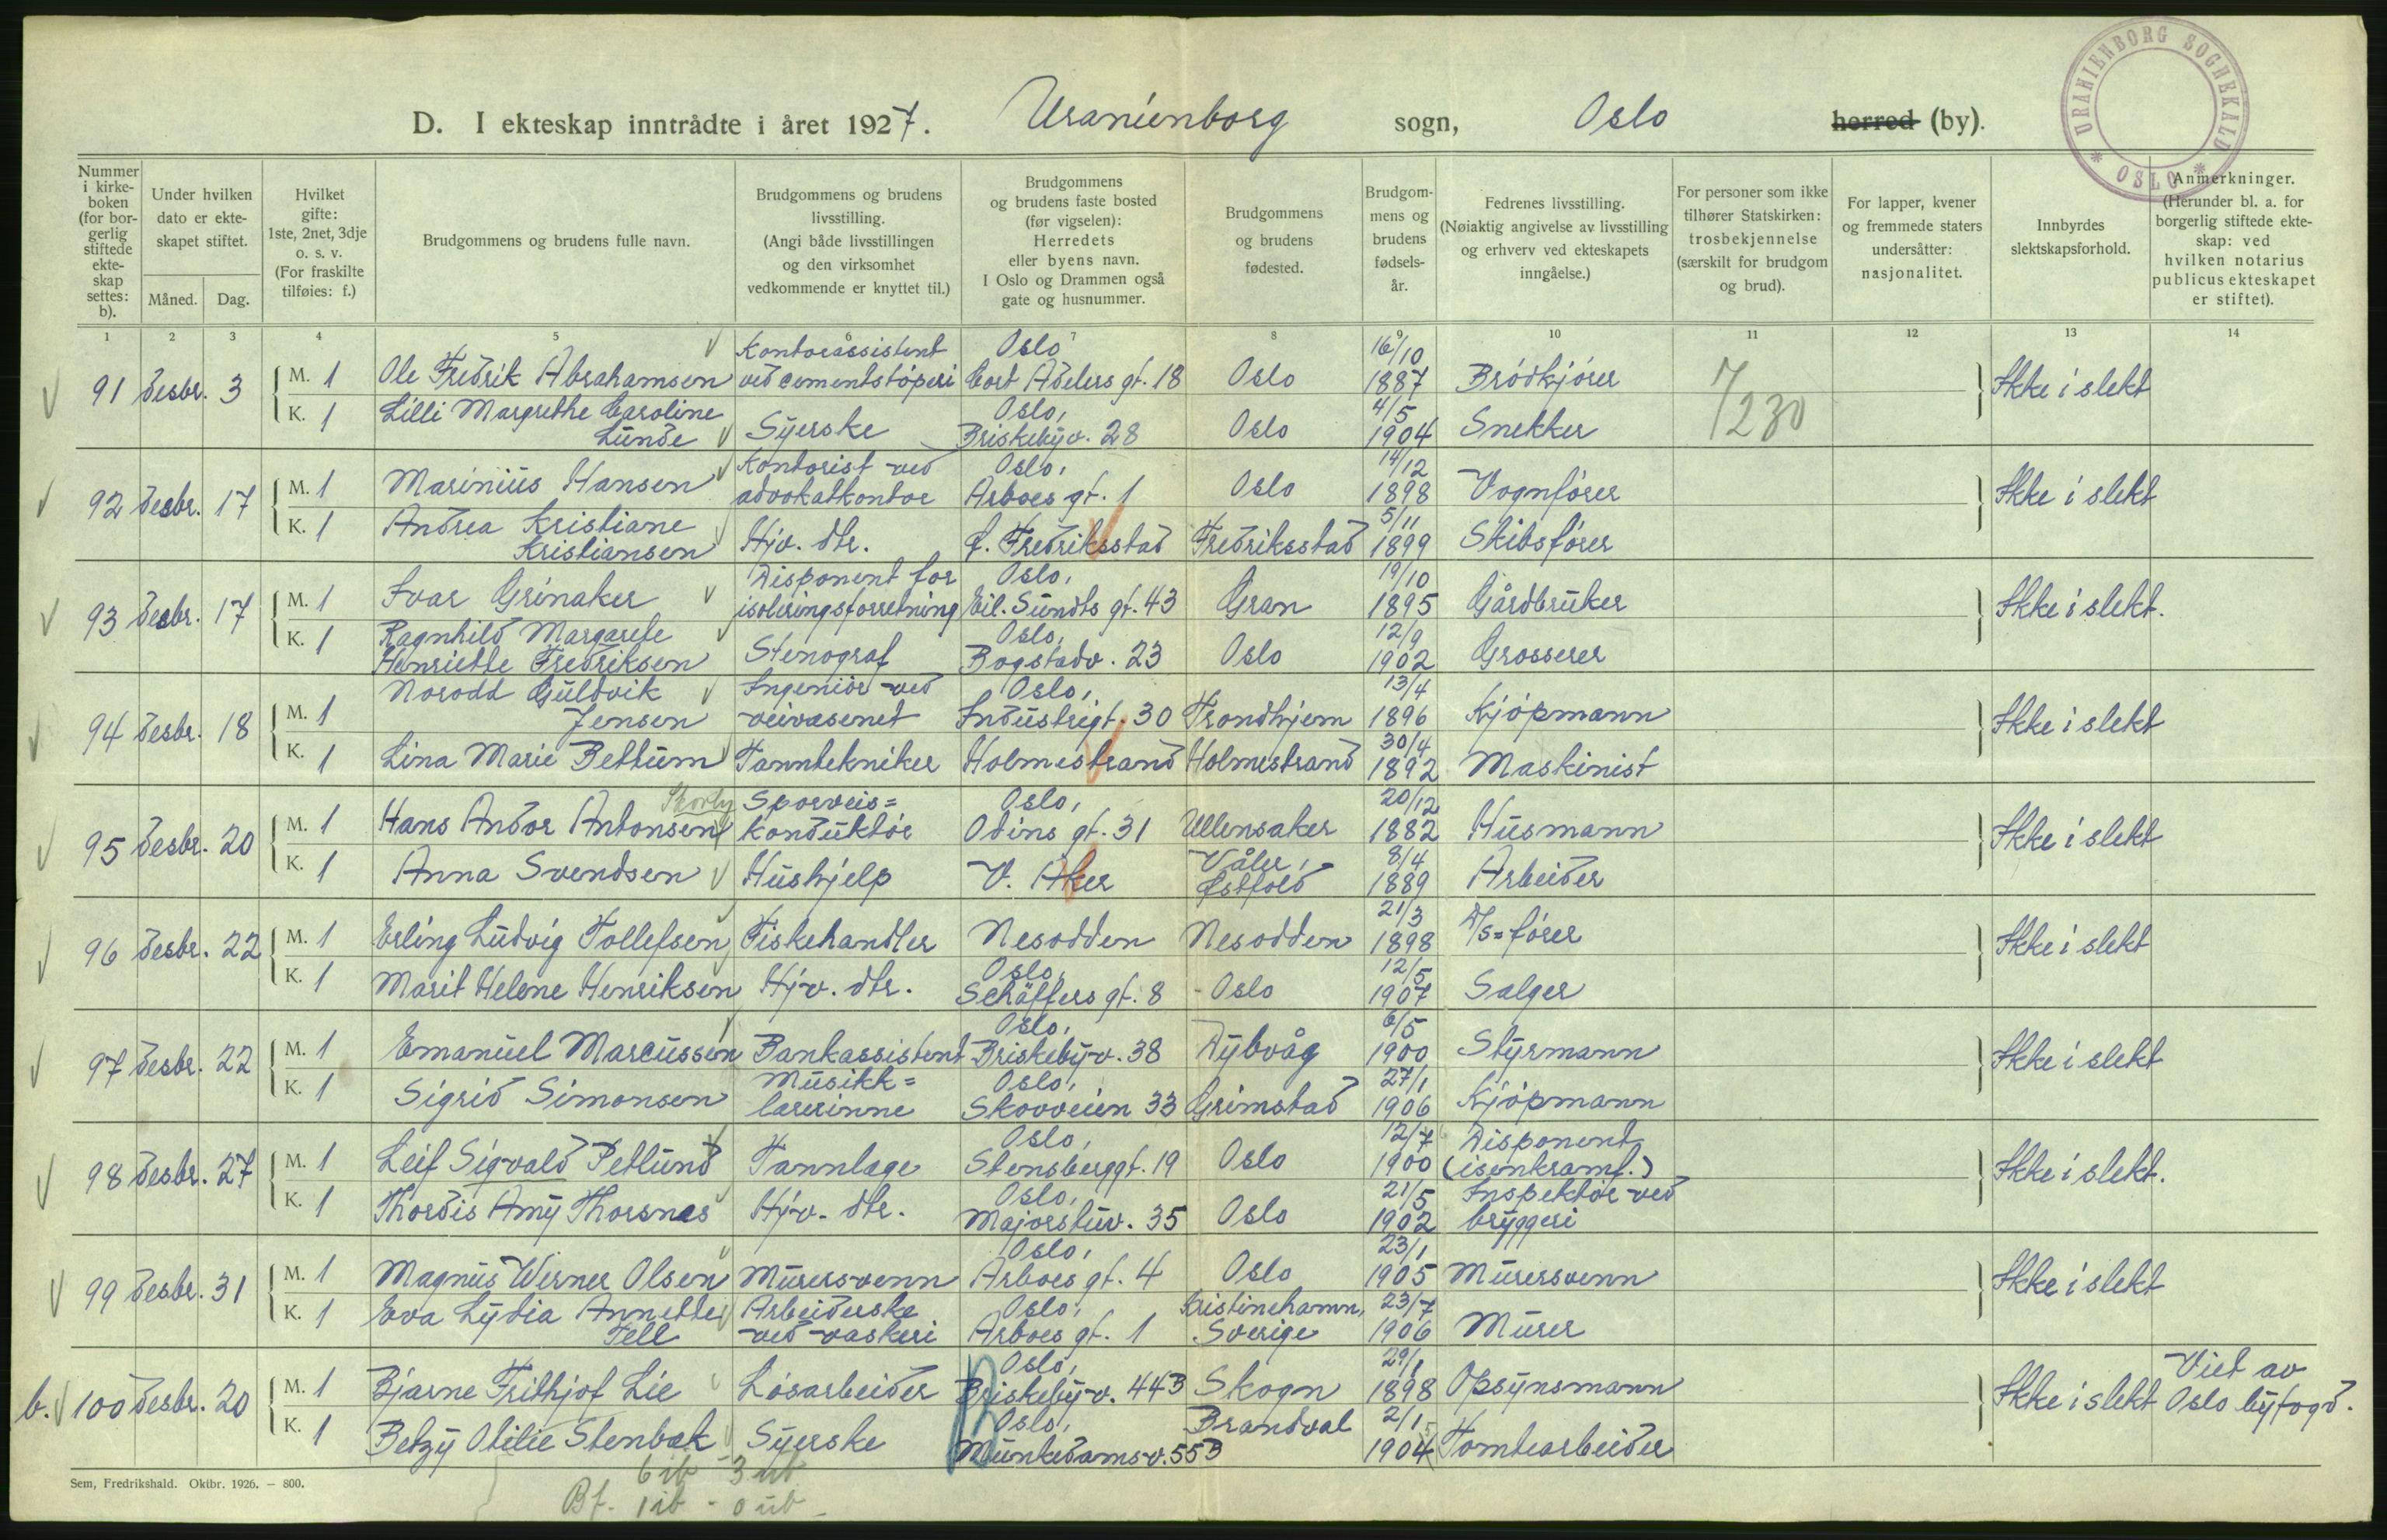 URANIENBORG SOGNEKALD * OSLO *
D. I ekteskap inntrådte i året 1927. Uranienborg sogn, Oslo herred (by).
Nummer i kirke-boken (for bor-gerlig stiftede ekte-skap settes: b).
Under hvilken dato er ekte-skapet stiftet.
Måned. Dag.
Hvilket gifte: 1ste, 2net, 3dje o. s. v. (For fraskilte tilføies: f.)
Brudgommens og brudens fulle navn.
Brudgommens og brudens livsstilling. (Angi både livsstillingen og den virksomhet vedkommende er knyttet til.)
Brudgommens og brudens faste bosted (før vigselen): Herredets eller byens navn. I Oslo og Drammen også gate og husnummer.
Brudgommens og brudens fødested.
Brudgom-mens og brudens fødsels-år.
Fedrenes livsstilling. (Nøiaktig angivelse av livsstilling og erhverv ved ekteskapets inngåelse.)
For personer som ikke tilhører Statskirken: trosbekjennelse (særskilt for brudgom og brud).
For lapper, kvener og fremmede staters undersåtter: nasjonalitet.
Innbyrdes slektskapsforhold.
Anmerkninger. (Herunder bl. a. for borgerlig stiftede ekte-skap: ved hvilken notarius publicus ekteskapet er stiftet).
1 2 3 4 5 6 7 8 9 10 11 12 13 14
91 desbr. 3 M. 1 Ole Fredrik Abrahamsen Kontorassistent ved cementstøperi Oslo Cort Adelers gt. 18 Oslo 16/10 1887 Brødkjører Ikke i slekt
K. 1 Lilli Margrethe Caroline Lunde Syerske Oslo, Briskebyv. 28 Oslo 4/5 1904 Snekker
7/230
92 desbr. 17 M. 1 Marinius Hansen Kontorist ved advokatkontor Oslo, Arboes gt. 1 Oslo 14/12 1898 Vognfører Ikke i slekt
K. 1 Andrea Kristiane Kristiansen Hjv. dtr. f. Fredriksstad Fredriksstad 5/11 1899 Skibsfører
93 desbr. 17 M. 1 Ivar Grinaker Disponent for isoleringsforretning Oslo, Eil. Sundts gt. 43 Gran 19/10 1895 Gårdbruker Ikke i slekt.
K. 1 Ragnhild Margarete Henriette Fredriksen Stenograf Oslo, Bogstadv. 23 Oslo 12/9 1902 Grosserer
94 desbr. 18 M. 1 Norodd Guldvik Jensen Ingeniør ved veivesenet Oslo, Industrigt. 30 Trondhjem 13/4 1896 Kjøpmann Ikke i slekt
K. 1 Lina Marie Bettum Tanntekniker Holmestrand Holmestrand 30/4 1892 Maskinist
95 desbr. 20 M. 1 Hans Andor Antonsen Sporveis= konduktør Oslo, Odins gt. 31 Ullensaker 20/12 1882 Husmann Ikke i slekt
K. 1 Anna Svendsen Hushjelp V. Aker Våler, Østfold 8/4 1889 Arbeider
96 desbr. 22 M. 1 Erling Ludvig Tollefsen Fiskehandler Nesodden Nesodden 21/3 1898 D/s=fører Ikke i slekt
K. 1 Marit Helene Henriksen Hjv. dtr. Oslo, Schäffers gt. 8 Oslo 12/5 1907 Selger
97 desbr. 22 M. 1 Emanuel Marcussen Bankassistent Oslo, Briskebyv. 38 Dybvåg 6/5 1900 Styrmann Ikke i slekt
K. 1 Sigrid Simonsen Musikk= lærerinne Oslo, Skovveien 33 Grimstad 27/1 1906 Kjøpmann
98 desbr. 27 M. 1 Leif Sigvald Petlund Tannlæge Oslo, Stensberggt. 19 Oslo 12/7 1900 Disponent (isenkramf.) Ikke i slekt.
K. 1 Thordis Amy Thorsnes Hjv. dtr. Oslo, Majorstuv. 35 Oslo 21/5 1902 Inspektør ved bryggeri
99 desbr. 31 M. 1 Magnus Werner Olsen Murersvenn Oslo, Arboes gt. 4 Oslo 23/1 1905 Murersvenn Ikke i slekt
K. 1 Eva Lydia Annette Tell Arbeiderske ved vaskeri Oslo, Arboes gt. 1 Kristinehamn, Sverige 23/7 1906 Murer
b. 100 desbr. 20 M. 1 Bjarne Frithjof Lie Løsarbeider Oslo, Briskebyv. 44B Skogn 29/1 1898 Opsynsmann Ikke i slekt Viet av Oslo byfogd.
K. 1 Betzy Otilie Stenbæk Syerske Oslo, Munkedamsv. 55B Brandval 2/1 1904 Tomtearbeider
6 ib - 3 ub
Bf. 1 ib - 0 ub
Sem, Fredrikshald. Oktbr. 1926. - 800.